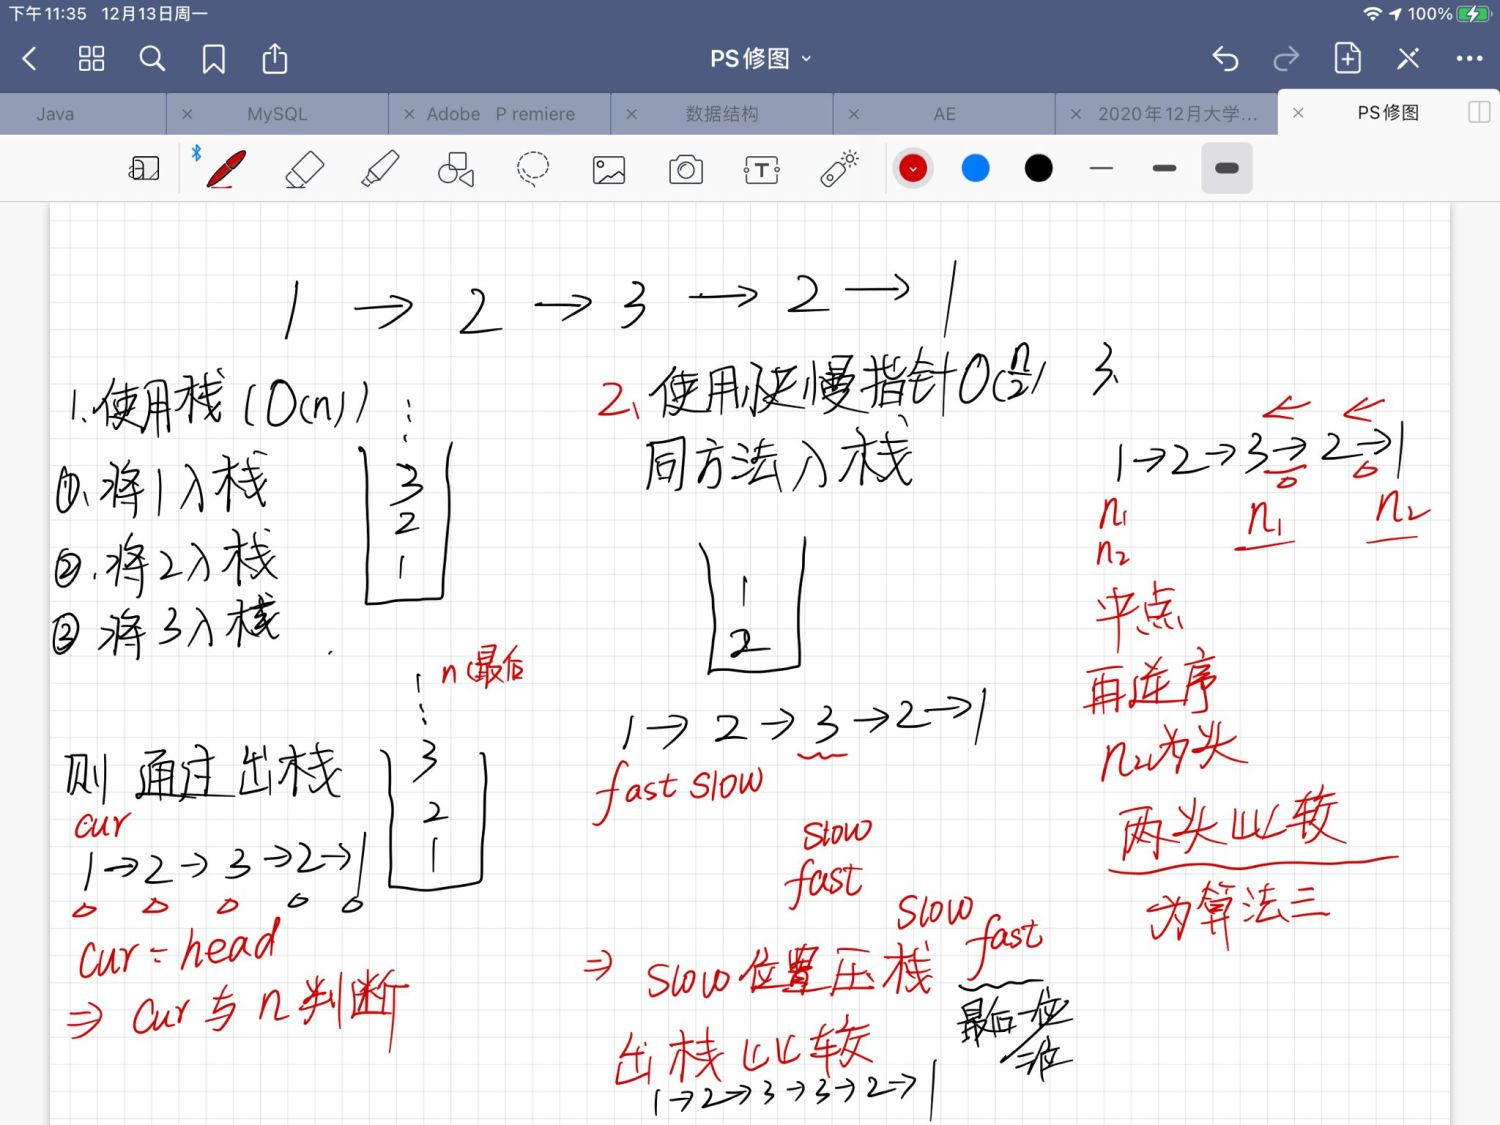 下午11:35 12月13日周一
100%
PS修图
Java
MySQL
Adobe P remiere
数据结构
AE
2020年12月大学...
PS修图
1 → 2 → 3 → 2 → 1
1.使用栈(O(n))
①、将1入栈
②.将2入栈
③将3入栈
3
2
1
n(最后
则通过出栈
3
2
1
cur
1→2→3→2→1
cur=head
⇒ cur与n判断
2、使用快慢指针O(n/2)
同方法入栈
1
2
1→2→3→2→1
fast slow
slow
fast
slow
fast
⇒ slow位置压栈
最后一位
二位
出栈比较
1→2→3→3→2→1
3、
← ←
1→2→3→2→1
n₁ n₁ n₂
n₂
中点
再逆序
n₂为头
两头比较
为算法三